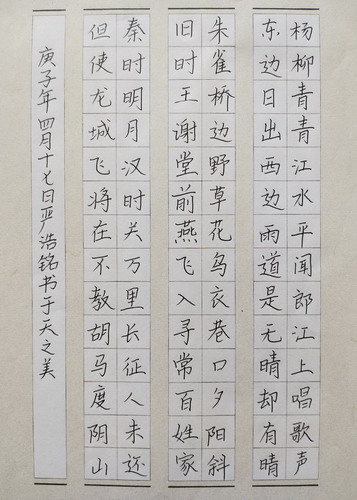 杨柳青青江水平闻郎江上唱歌声
东边日出西边雨道是无晴却有晴
朱雀桥边野草花乌衣巷口夕阳斜
旧时王谢堂前燕飞入寻常百姓家
秦时明月汉时关万里长征人未还
但使龙城飞将在不教胡马度阴山
庚子年四月十七日严浩铭书于天之美